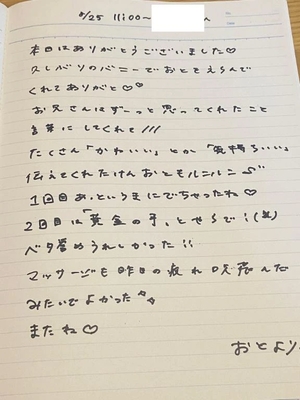 8/25 11:00〜
本日はありがとうございました♡
久しぶりのバニーでおとをえらんで
くれてありがと♡♡
お兄さんはずーっと思ってくれたこと
言葉にしてくれて///
たくさん「かわいい」とか「気持ちいい」
伝えてくれたけんおともルンルン
1回目あっというまにでちゃったね♡
2回目は「黄金の手」とやらで!(笑)
ベタ誉めうれしかった!!
マッサージも昨日の疲れ吹き飛んだ
みたいでよかった
またね♡
おとより